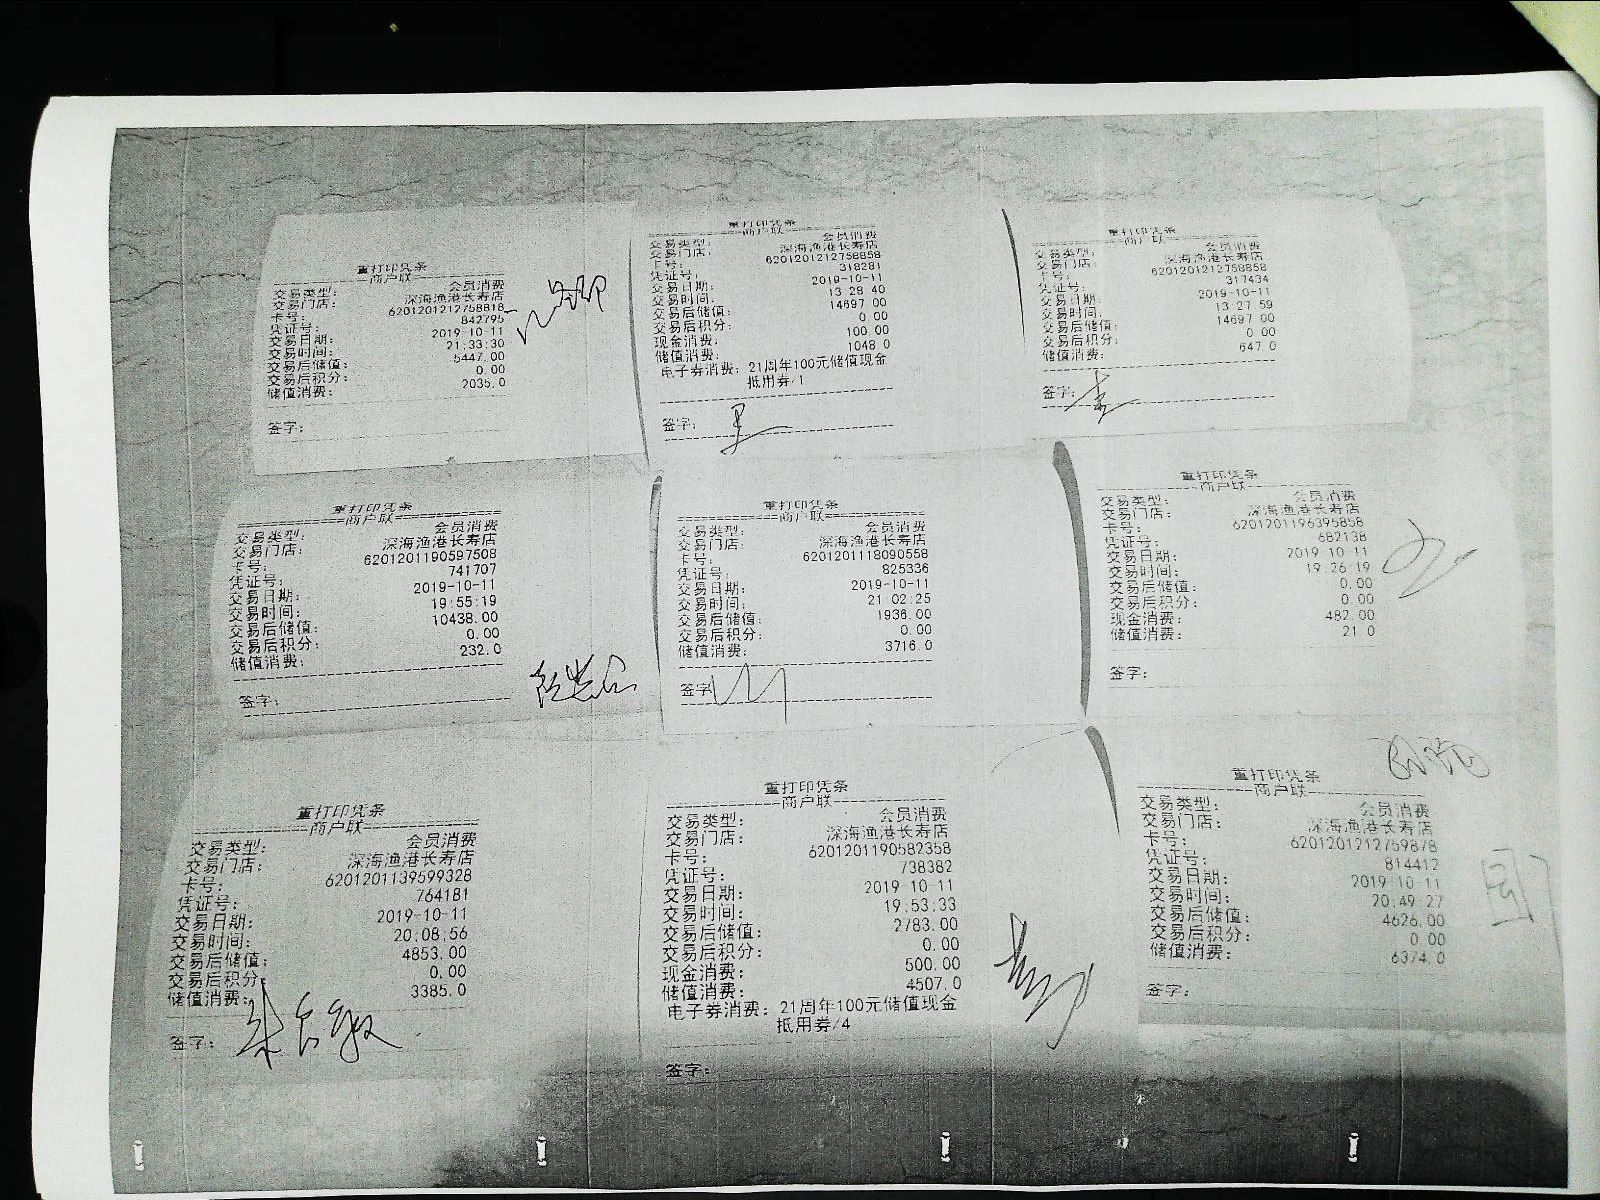 重打印凭条
商户联
交易类型: 会员消费
交易门店: 深海渔港长寿店
卡号: 6201201212758818
凭证号: 842795
交易日期: 2019-10-11
交易时间: 21:33:30
交易后储值: 5447.00
交易后积分: 0.00
储值消费: 2035.0
签字:
重打印凭条
商户联
交易类型: 会员消费
交易门店: 深海渔港长寿店
卡号: 6201201212758858
凭证号: 318281
交易日期: 2019-10-11
交易时间: 13:28:40
交易后储值: 14697.00
交易后积分: 0.00
现金消费: 100.00
储值消费: 1048.0
电子券消费: 21周年100元储值现金
抵用券/1
签字:
重打印凭条
商户联
交易类型: 会员消费
交易门店: 深海渔港长寿店
卡号: 6201201212758858
凭证号: 317434
交易日期: 2019-10-11
交易时间: 13:27:59
交易后储值: 14697.00
交易后积分: 0.00
储值消费: 647.0
签字:
重打印凭条
商户联
交易类型: 会员消费
交易门店: 深海渔港长寿店
卡号: 6201201190597508
凭证号: 741707
交易日期: 2019-10-11
交易时间: 19:55:19
交易后储值: 10438.00
交易后积分: 0.00
储值消费: 232.0
签字:
重打印凭条
商户联
交易类型: 会员消费
交易门店: 深海渔港长寿店
卡号: 6201201118090558
凭证号: 825336
交易日期: 2019-10-11
交易时间: 21:02:25
交易后储值: 1936.00
交易后积分: 0.00
储值消费: 3716.0
签字
重打印凭条
商户联
交易类型: 会员消费
交易门店: 深海渔港长寿店
卡号: 6201201196395858
凭证号: 682138
交易日期: 2019-10-11
交易时间: 19:26:19
交易后储值: 0.00
交易后积分: 0.00
现金消费: 482.00
储值消费: 21.0
签字:
重打印凭条
商户联
交易类型: 会员消费
交易门店: 深海渔港长寿店
卡号: 6201201139599328
凭证号: 764181
交易日期: 2019-10-11
交易时间: 20:08:56
交易后储值: 4853.00
交易后积分: 0.00
储值消费: 3385.0
签字:
重打印凭条
商户联
交易类型: 会员消费
交易门店: 深海渔港长寿店
卡号: 6201201190582358
凭证号: 738382
交易日期: 2019-10-11
交易时间: 19:53:33
交易后储值: 2783.00
交易后积分: 0.00
现金消费: 500.00
储值消费: 4507.0
电子券消费: 21周年100元储值现金
抵用券/4
签字:
重打印凭条
商户联
交易类型: 会员消费
交易门店: 深海渔港长寿店
卡号: 6201201212759878
凭证号: 814412
交易日期: 2019-10-11
交易时间: 20:49:27
交易后储值: 4626.00
交易后积分: 0.00
储值消费: 6374.0
签字: